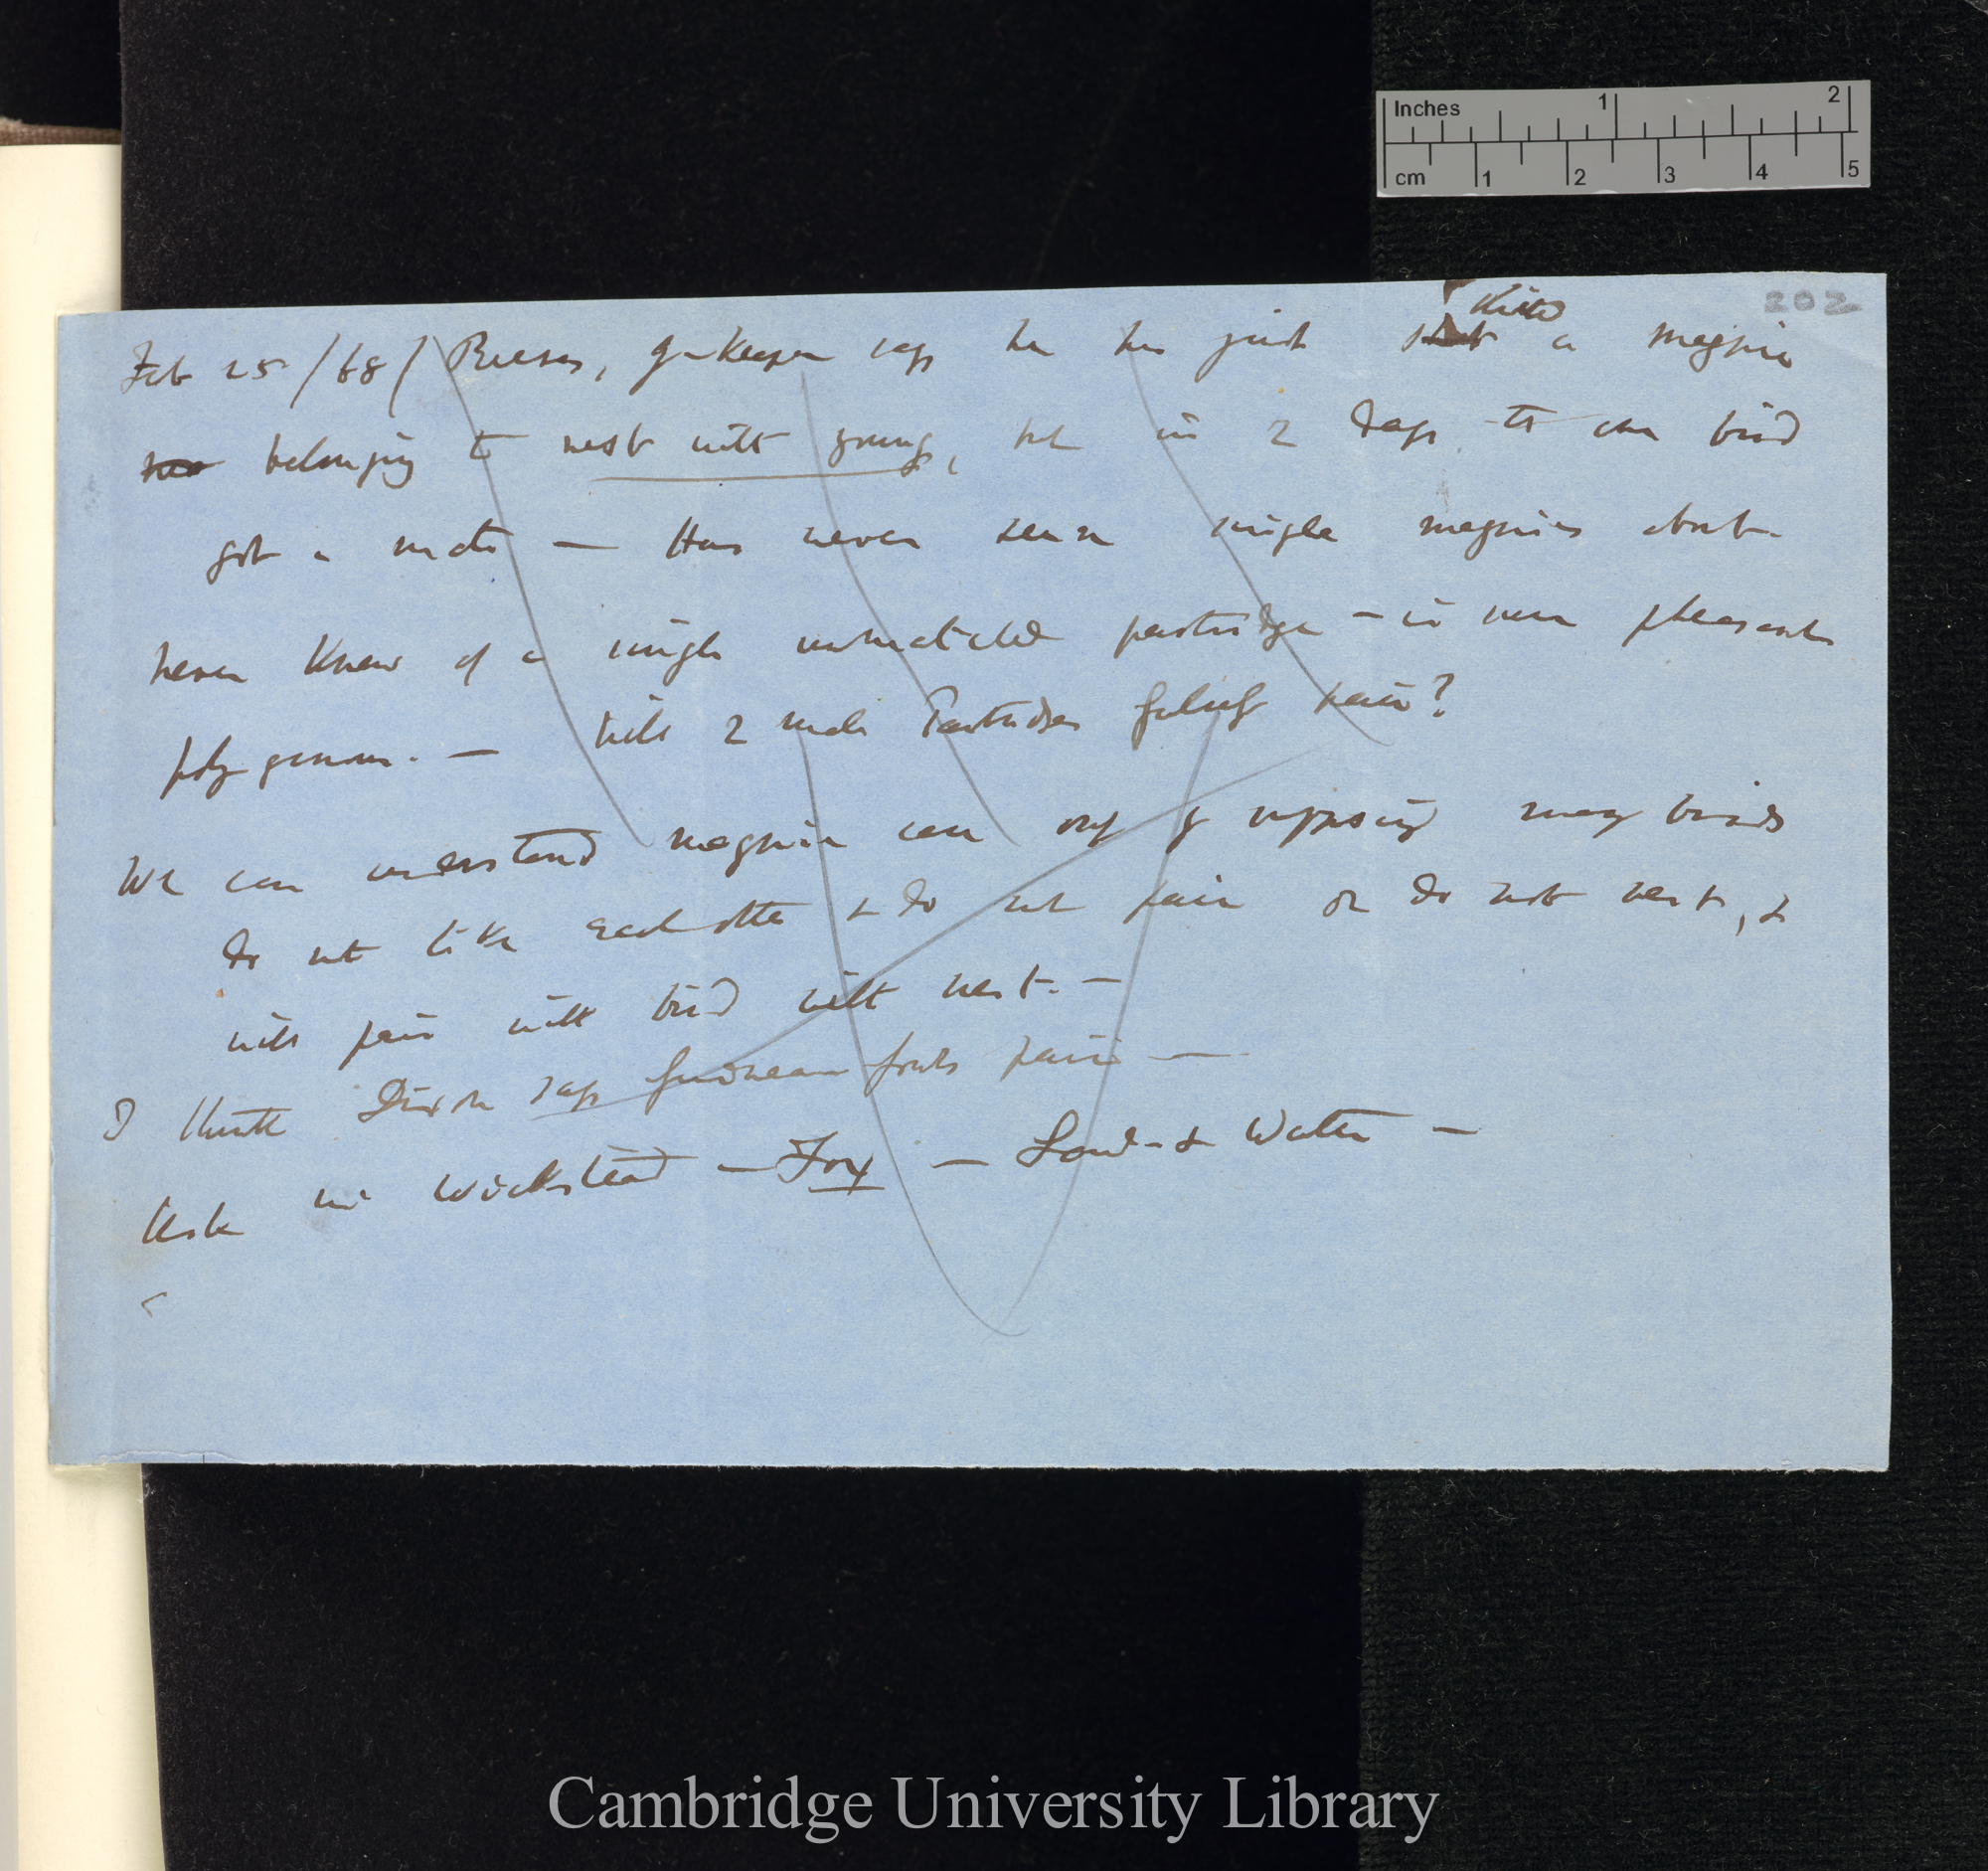 Inches 1 2
cm 1 2 3 4 5
202
killed
Feb 25 /68/ Reeves, g-keeper says he has just shot a magpie
belonging to nest with young, but in 2 days the one bird
got a mate — Has never seen single magpies about.
never knew of a single unmatched partridge — in new pheasants
polygamous. — Will 2 male Partridges pair?
We can understand magpie case only by supposing many birds
do not like each other & do not pair or do not nest, &
will pair with bird with nest. —
I think Dixon says guinean fowls pair —
Ask Mr Wicksteed — Fox — Land & Water —
Cambridge University Library